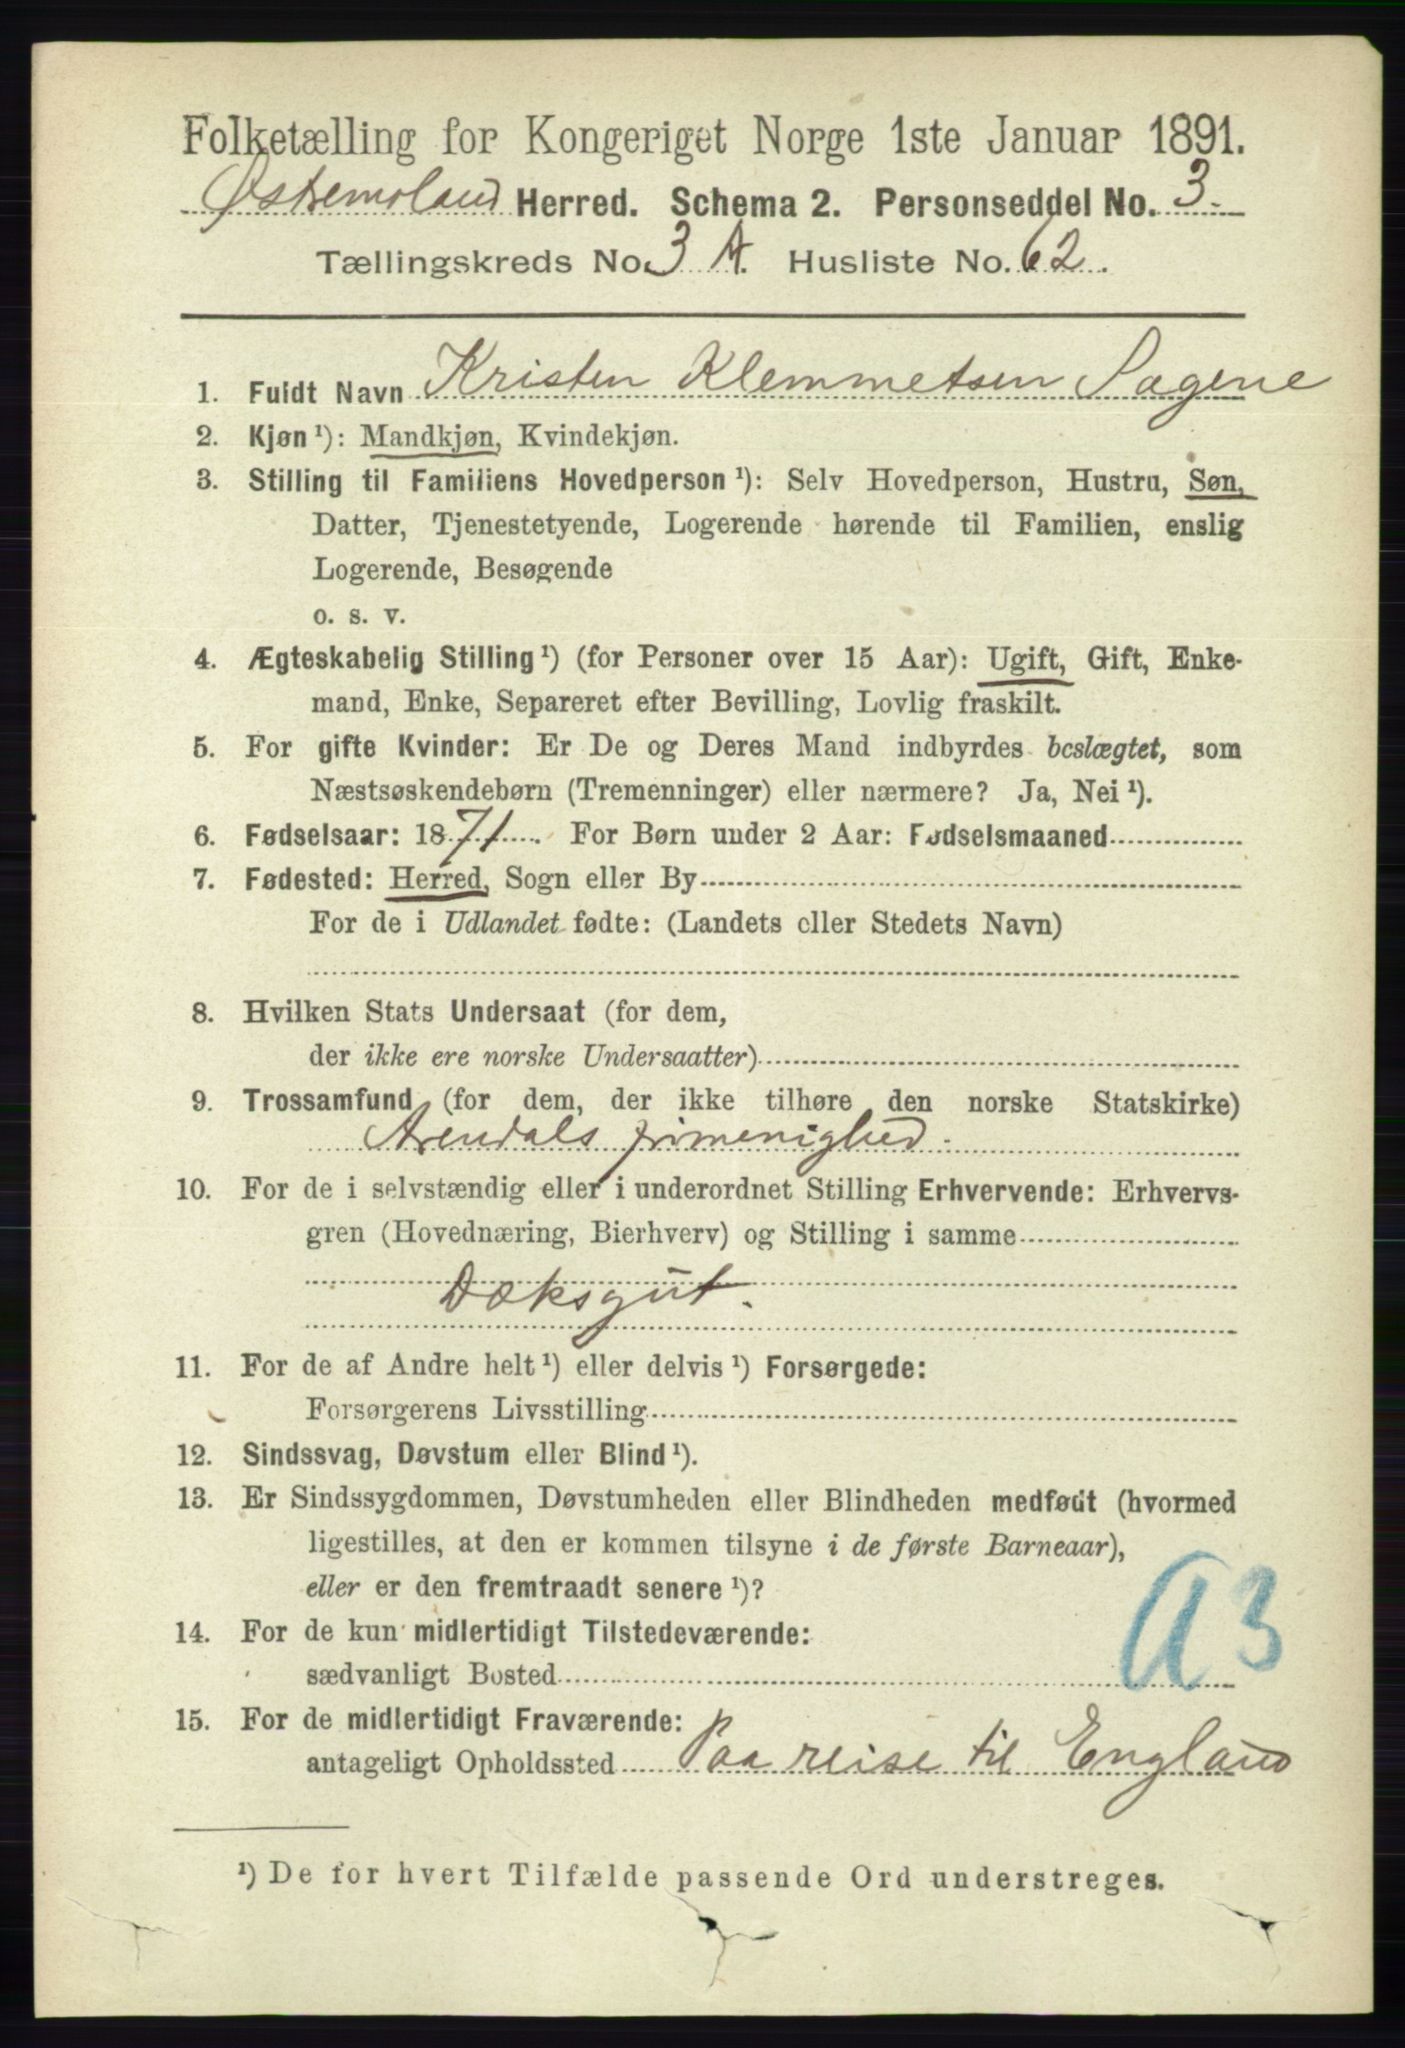 Folketælling for Kongeriget Norge 1ste Januar 1891.
Østremoland Herred. Schema 2. Personseddel No. 3.
Tællingskreds No. 3 A. Husliste No. 62.
1. Fuldt Navn Kristen Klemmetsen Sagene
2. Kjøn ¹): Mandkjøn, Kvindekjøn.
3. Stilling til Familiens Hovedperson ¹): Selv Hovedperson, Hustru, Søn,
Datter, Tjenestetyende, Logerende hørende til Familien, enslig
Logerende, Besøgende
o. s. v.
4. Ægteskabelig Stilling ¹) (for Personer over 15 Aar): Ugift, Gift, Enke-
mand, Enke, Separeret efter Bevilling, Lovlig fraskilt.
5. For gifte Kvinder: Er De og Deres Mand indbyrdes beslægtet, som
Næstsøskendebørn (Tremenninger) eller nærmere? Ja, Nei ¹).
6. Fødselsaar: 1871. For Børn under 2 Aar: Fødselsmaaned
7. Fødested: Herred, Sogn eller By
For de i Udlandet fødte: (Landets eller Stedets Navn)
8. Hvilken Stats Undersaat (for dem,
der ikke ere norske Undersaatter)
9. Trossamfund (for dem, der ikke tilhøre den norske Statskirke)
Arendals frimenighed.
10. For de i selvstændig eller i underordnet Stilling Erhvervende: Erhvervs-
gren (Hovednæring, Bierhverv) og Stilling i samme
Dæksgut.
11. For de af Andre helt ¹) eller delvis ¹) Forsørgede:
Forsørgerens Livsstilling
12. Sindssvag, Døvstum eller Blind ¹).
13. Er Sindssygdommen, Døvstumheden eller Blindheden medfødt (hvormed
ligestilles, at den er kommen tilsyne i de første Barneaar),
eller er den fremtraadt senere ¹)?
A3
14. For de kun midlertidigt Tilstedeværende:
sædvanligt Bosted
15. For de midlertidigt Fraværende:
antageligt Opholdssted Paa reise til England
¹) De for hvert Tilfælde passende Ord understreges.